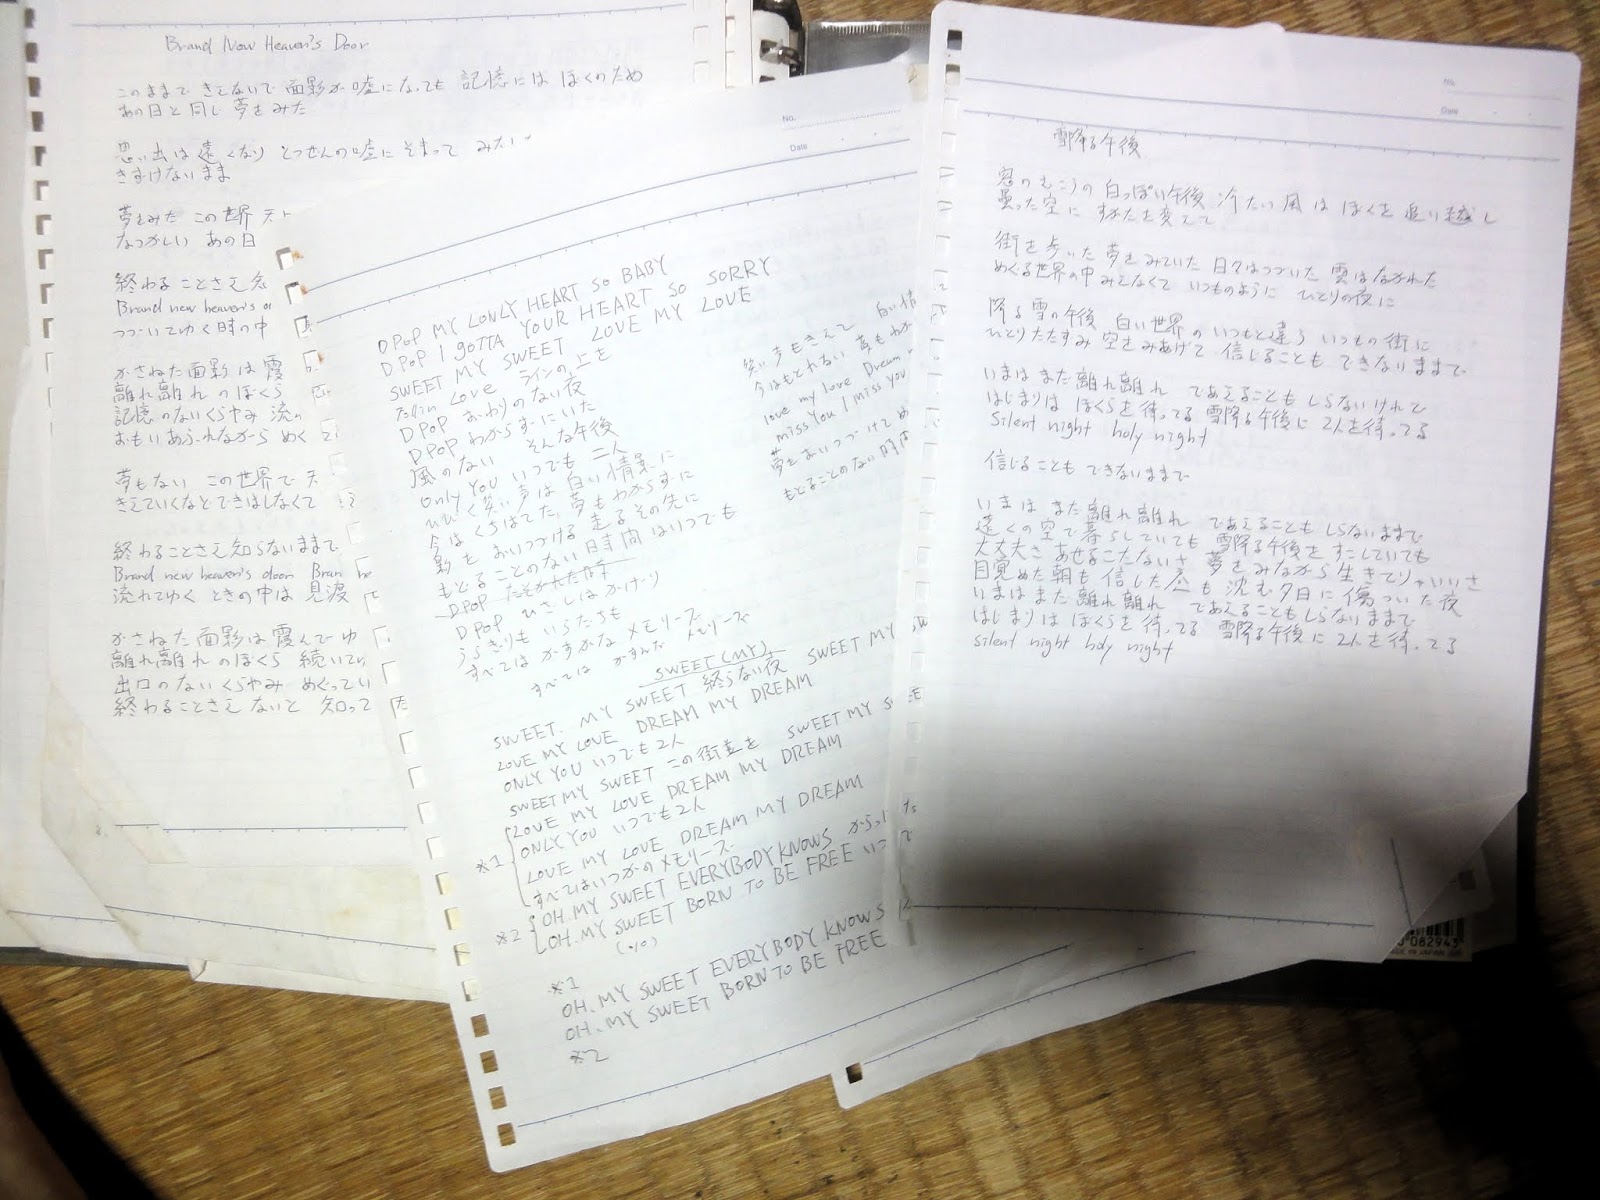 Brand New Heaven's Door
このままで きえないで 面影が嘘になっても 記憶には ぼくのため
あの日と同じ 夢をみた
思い出は遠くなり とつぜんの嘘に そまって みたい
きずけないまま
夢をみた この世界
なつかしい あの日
終わることさえ
Brand new heaven's
つづいてゆく時の中
かさねた面影は霞
離れ離れのぼくら
記憶のないくらやみ 流
おもいあふれながら めく
夢もない この世界で 天
きえていくなどできはしなくて
終わることさえ知らないままで
Brand new heaven's door Bran
流れてゆく ときの中は 見渡
かさねた面影は霞んでゆ
離れ離れのぼくら 続いて
出口のないくらやみ めぐってい
終わることさえ ないと 知って
No.
Date
D POP MY LONLY HEART SO BABY
D POP I GOTTA YOUR HEART SO SORRY
SWEET MY SWEET LOVE MY LOVE
Fallin Love ラインの上を
D POP おわりのない夜
D POP わからずにいた
風のない そんな午後
Only You いつでも 二人
ひびく笑い声は 白い情景に
今はくちはてた 夢もわからずに
影を おいつづける 走るその先に
もどることのない時間はいつでも
D POP たそがれた時
D POP ひざしはかげり
うらぎりも いらだちも
すべては かすかな メモリーズ
すべては かすんだ メモリーズ
笑い声もきえて 白い情
今はもどれない 夢もわか
love my love Dream
miss You I miss You
夢をおいつづけて め
もどることのない時間
SWEET (MY)
SWEET. MY SWEET 終らない夜 SWEET MY
LOVE MY LOVE DREAM MY DREAM
ONLY YOU いつでも2人
SWEET MY SWEET この街並を SWEET MY
LOVE MY LOVE DREAM MY DREAM
ONLY YOU いつでも2人
※1 LOVE MY LOVE DREAM MY DREAM
すべてはいつかのメモリーズ
※2 OH. MY SWEET EVERYBODY KNOWS
OH. MY SWEET BORN TO BE FREE
※1
OH. MY SWEET EVERYBODY KNOWS
OH. MY SWEET BORN TO BE FREE
※2
No.
Date
雪降る午後
窓のむこうの 白っぽい午後 冷たい風は ぼくを追い越し
曇った空に すがたを変えて
街を歩いた 夢をみていた 日々はつづいた 雲はながれた
めぐる世界の中 みえなくて いつものように ひとりの夜に
降る雪の午後 白い世界の いつもと違う いつもの街に
ひとりたたずみ 空をみあげて 信じることも できないままで
いまは まだ離れ離れ であえることも しらないけれど
はじまりは ぼくらを待ってる 雪降る午後に 2人を待ってる
Silent night holy night
信じることも できないままで
いまは まだ 離れ離れ であえることも しらないままで
遠くの空で暮らしていても 雪降る午後を すごしていても
大丈夫さ あせることないさ 夢をみながら 生きてりゃいいさ
目覚めた朝も 信じた昼も 沈む夕日に 傷ついた夜
いまはまだ離れ離れ であえることもしらないままで
はじまりは ぼくらを待ってる 雪降る午後に 2人を待ってる
silent night holy night
082943